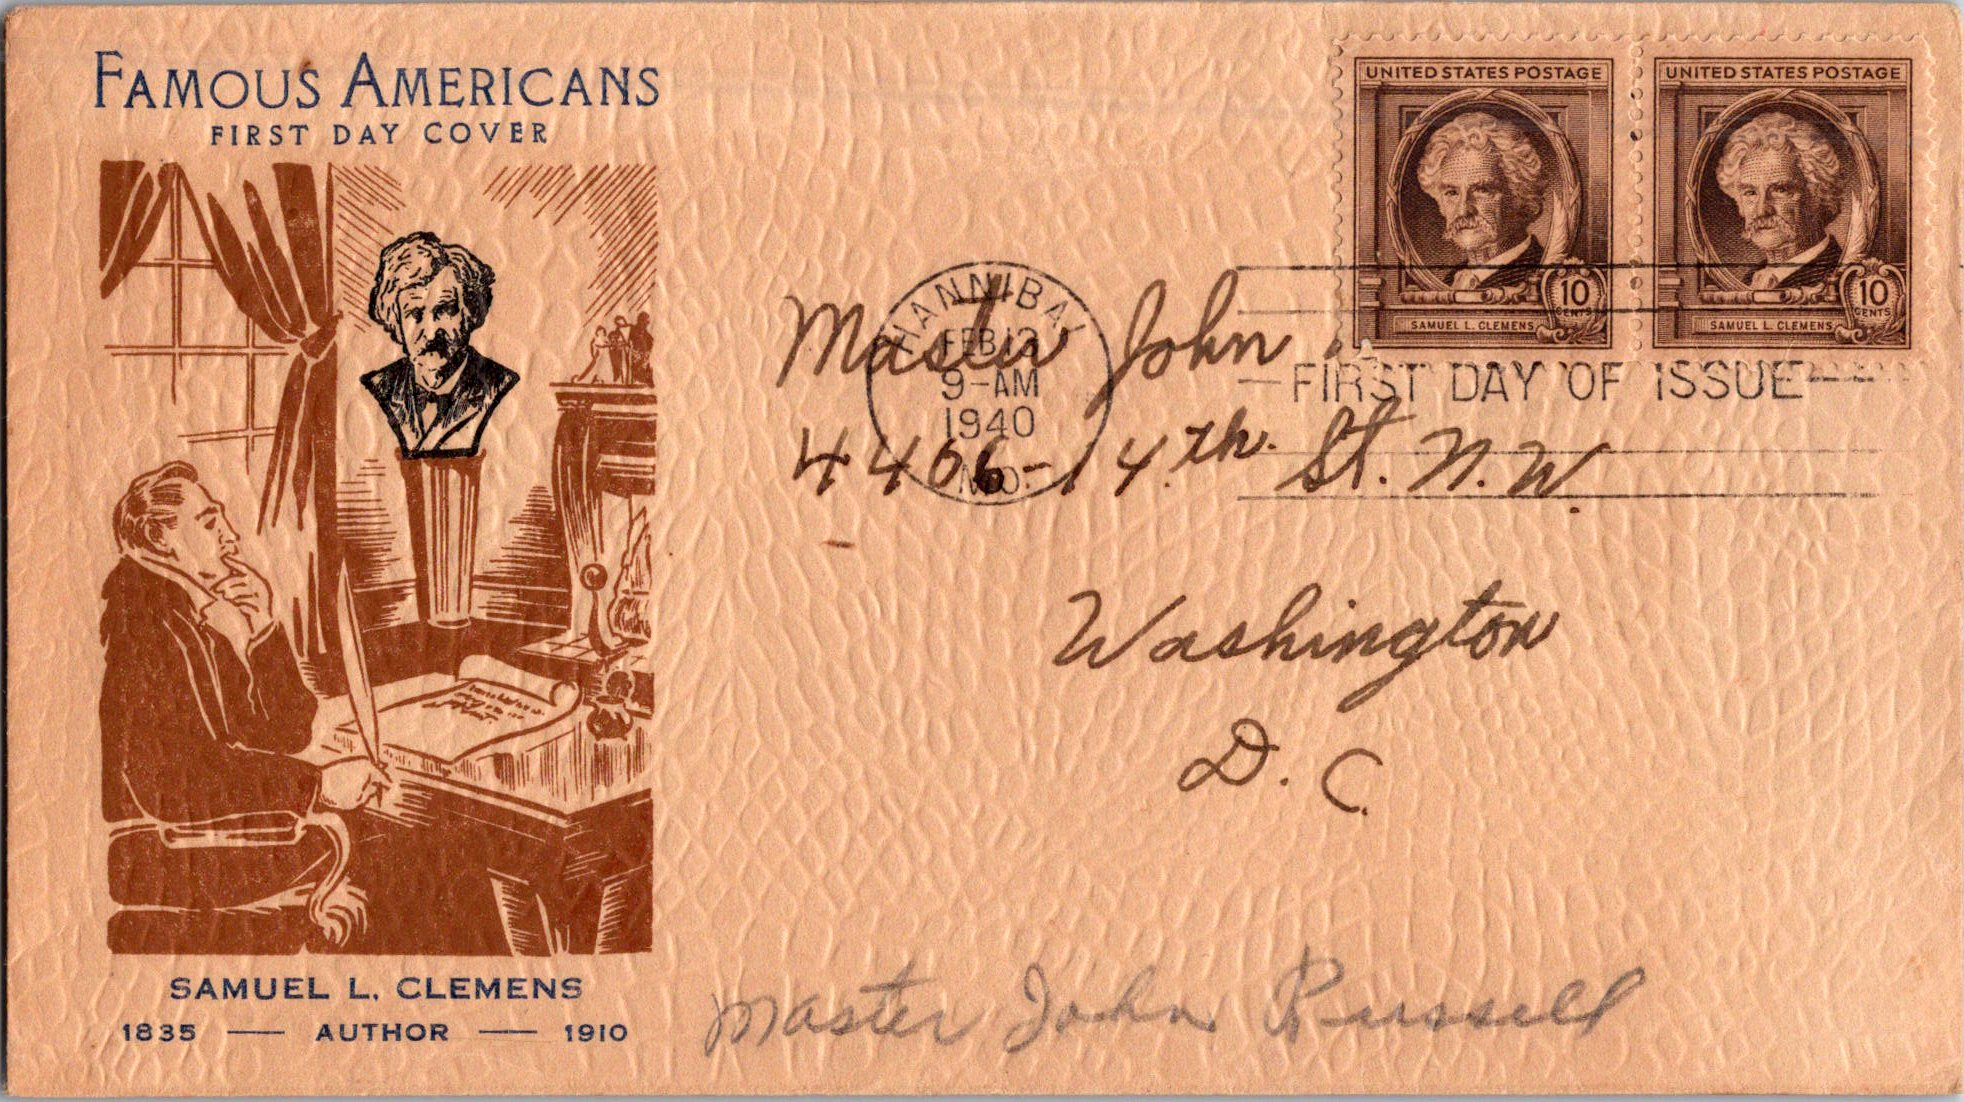 FAMOUS AMERICANS
FIRST DAY COVER
UNITED STATES POSTAGE
10
CENTS
SAMUEL L. CLEMENS
UNITED STATES POSTAGE
10
CENTS
SAMUEL L. CLEMENS
HANNIBAL
FEB 13
9-AM
1940
MO.
FIRST DAY OF ISSUE
Master John
4466-14th. St. N.W.
Washington
D. C.
Master John Russell
SAMUEL L. CLEMENS
1835 — AUTHOR — 1910